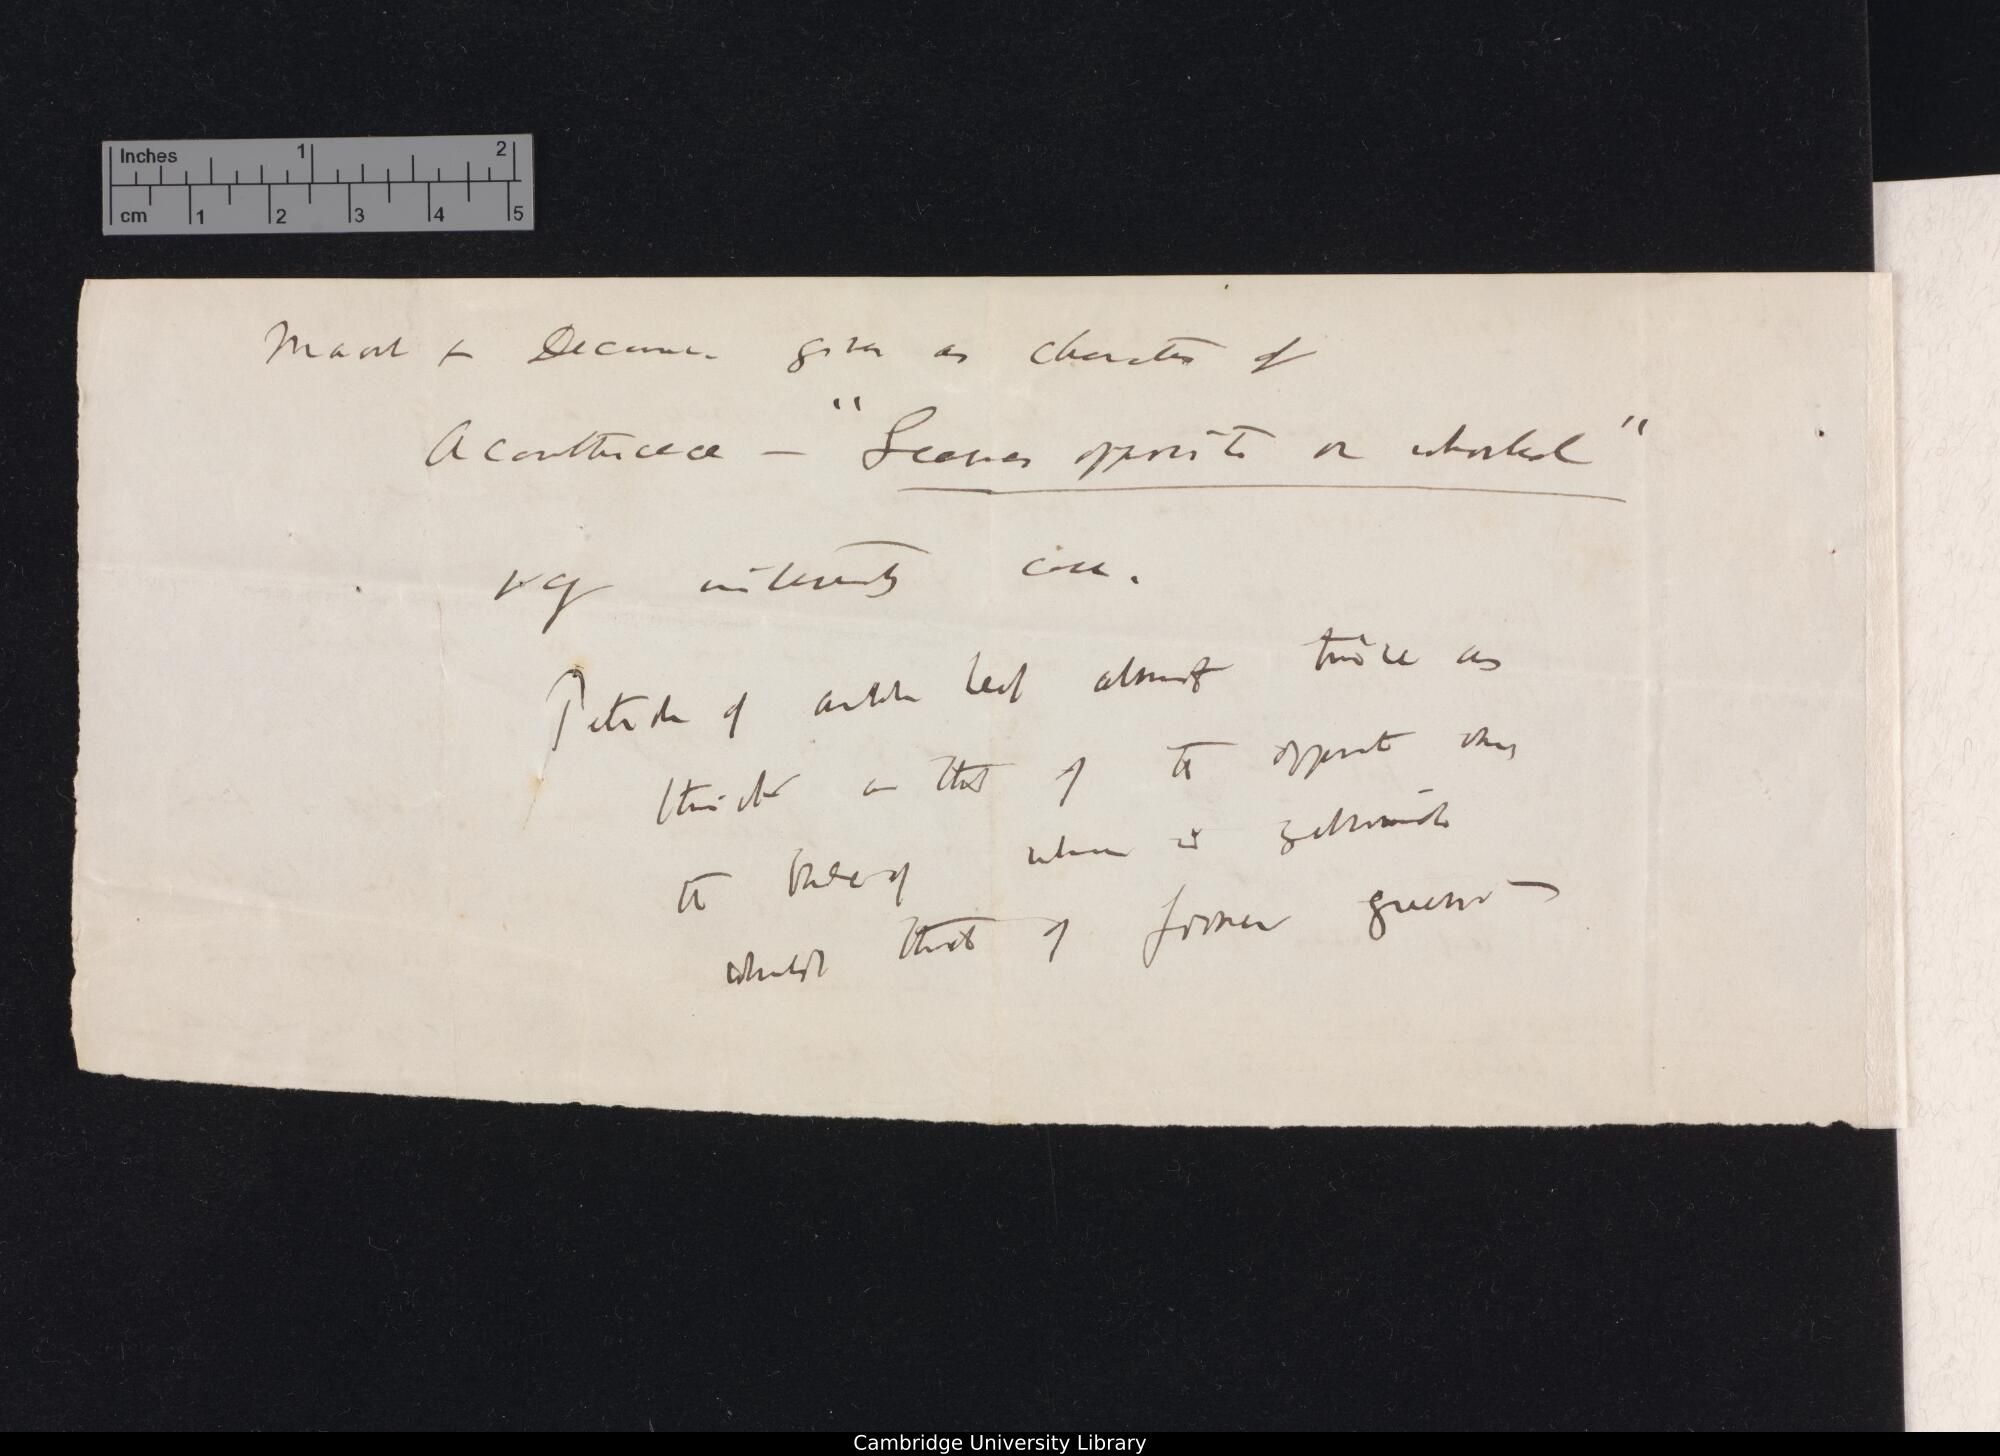 Inches 1 2
cm 1 2 3 4 5
Maout & Decaisne give as character of
Acanthaceæ — "Leaves opposite or whorled"
V. of interesting case.
Petiole of leaf almost twice as
thick as that of the opposite one
the when is
whilst that of former
Cambridge University Library